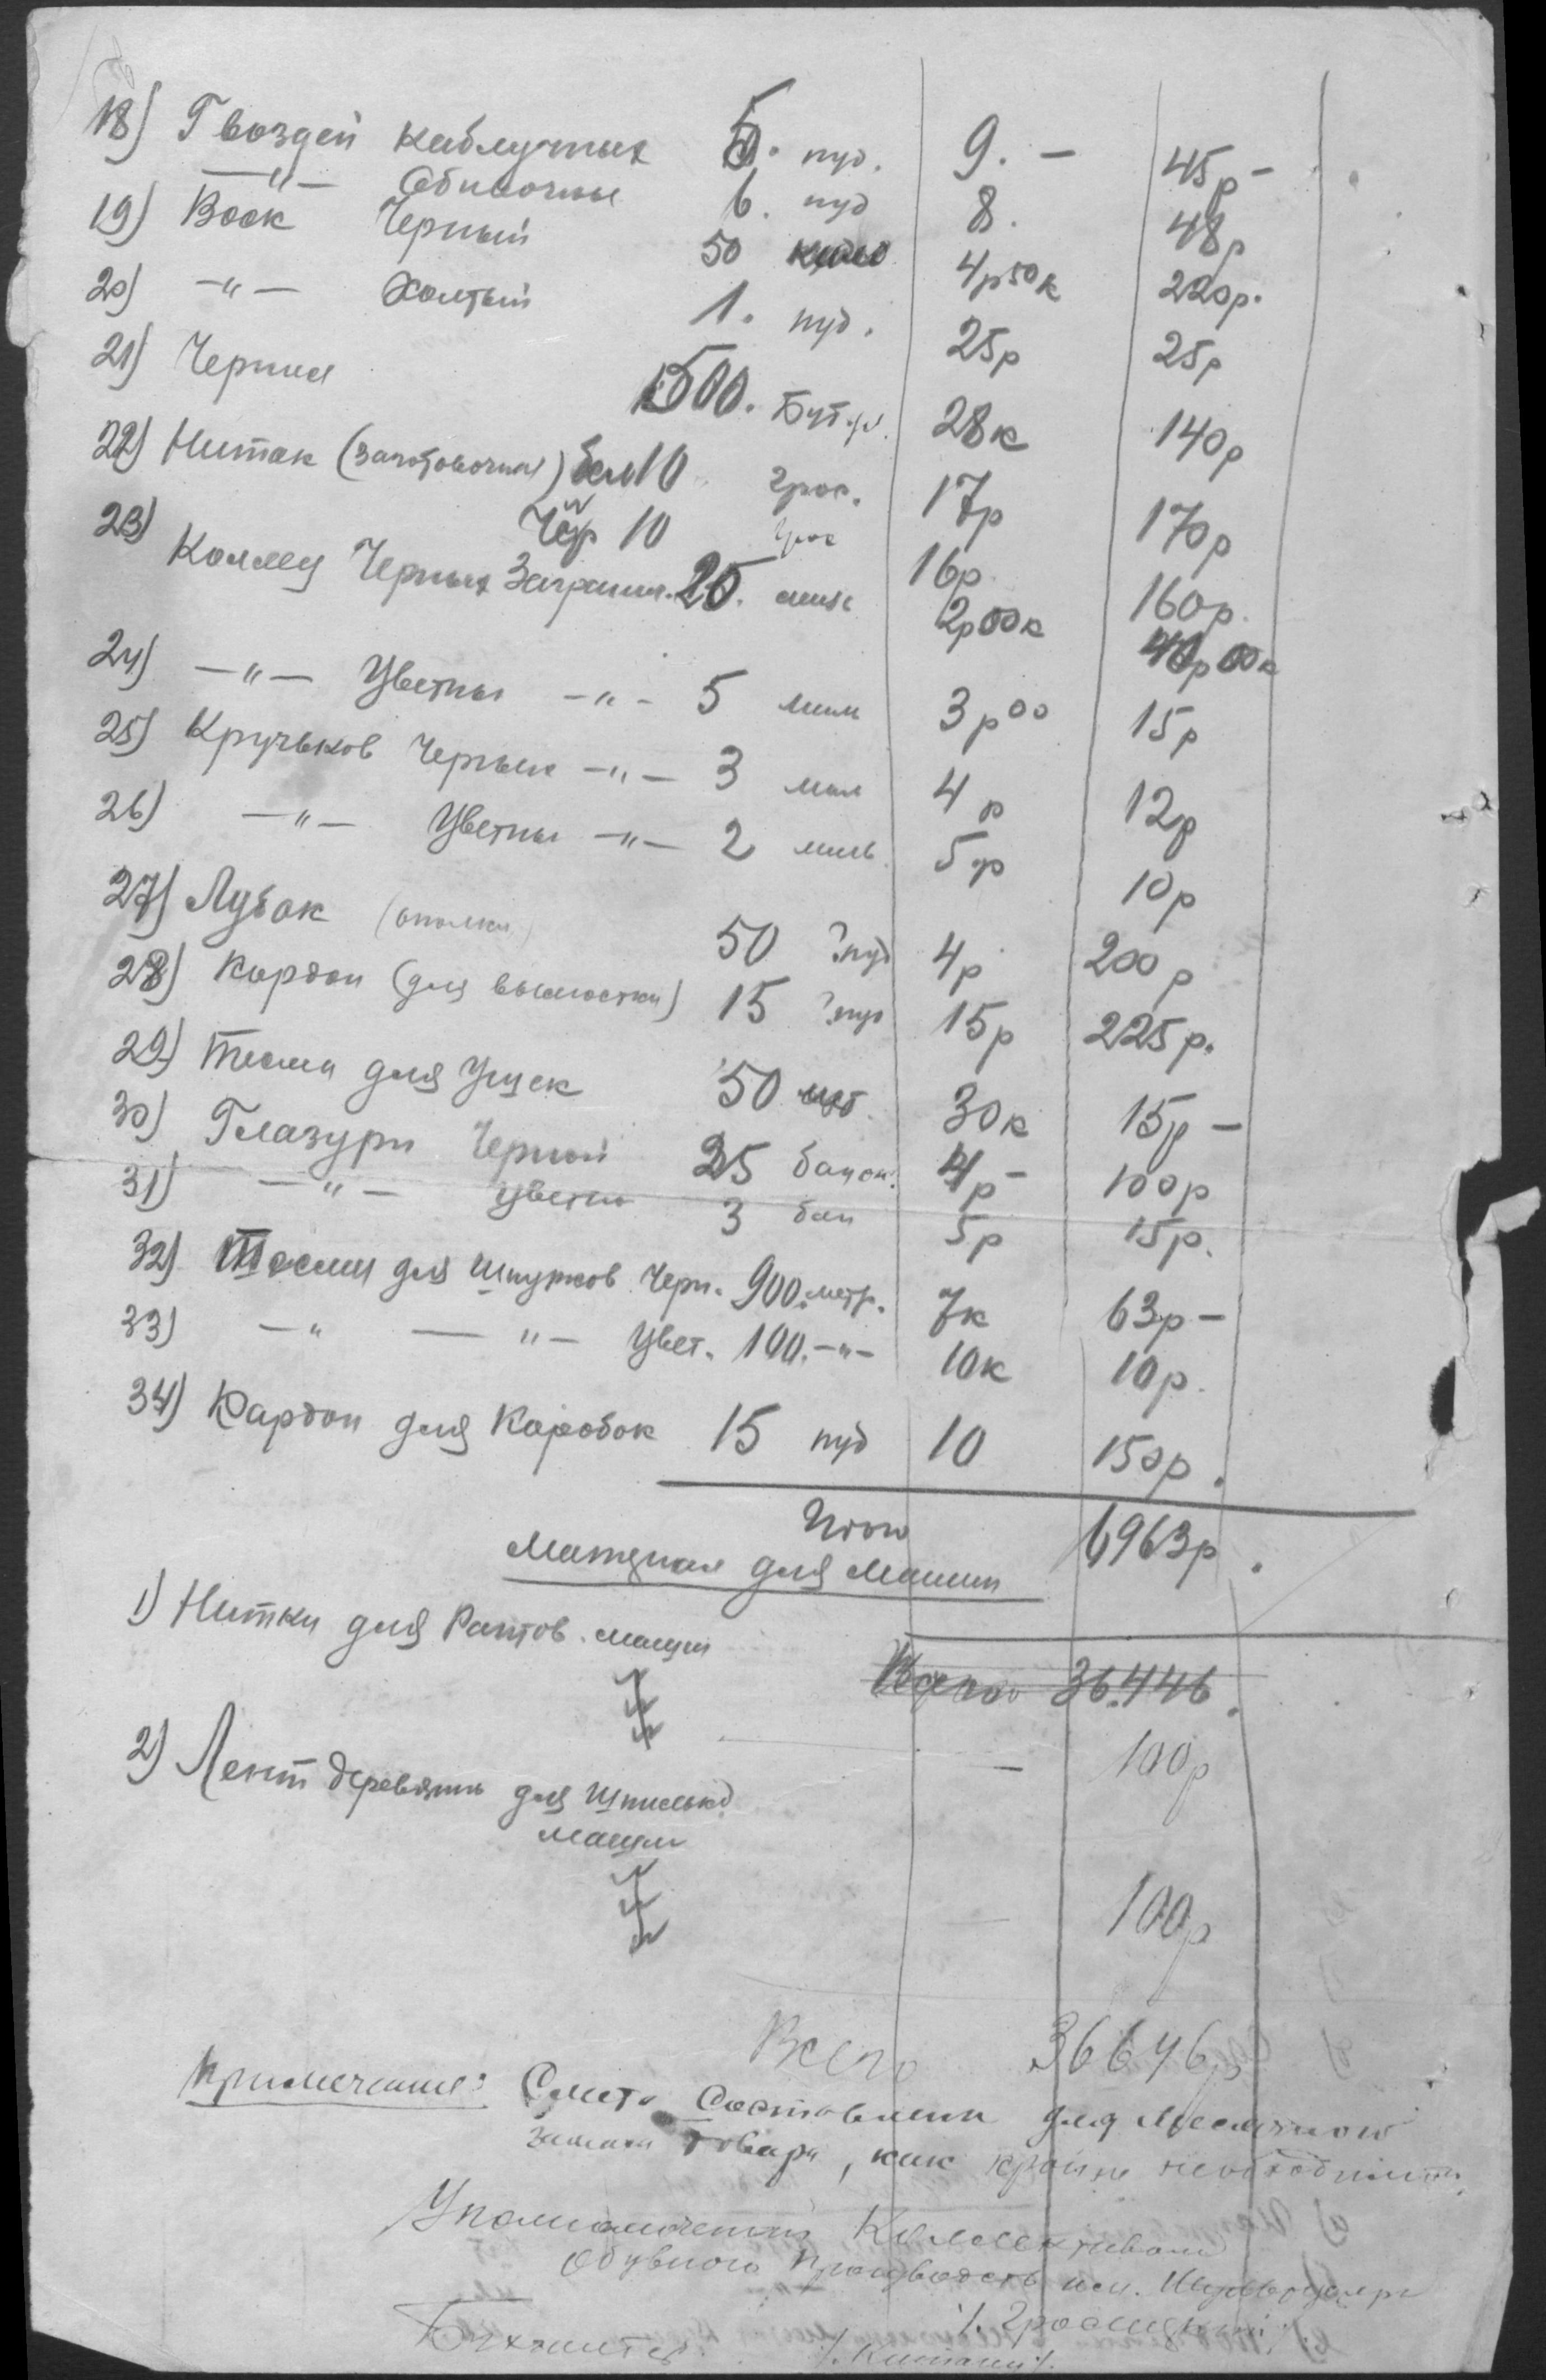 18) Гвоздей каблучных 5. пуд. 9. — 45р —
—"— Обивочные 6. пуд 8. 48р
19) Воск Черный 50 кило 4р50к 220р.
20) —"— Желтый 1. пуд. 25р 25р
21) Чернил 500. Бут. 28к 140р
22) Ниток (заготовочных) Бел 10 грос. 17р 170р
Чер 10 грос 16р 160р.
23) Черных Загранич. 20. 2р00к 40р00к
24) —"— Цветных —"— 5 миль 3р00 15р
25) Кручьков Черных —"— 3 мил 4р 12р
26) —"— Цветны —"— 2 миль 5р 10р
27) Лубок 50 пуд 4р 200р
28) Кардон (для выстилки) 15 пуд 15р 225р.
29) Тесмы для Ушек 50 30к 15р —
30) Глазури Черной 25 банок. 4р — 100р
31) —"— Цветн 3 бан 5р 15р.
32) Тесмы для Шнурков Черн. 900. метр. 7к 63р —
33) —" — "— Цвет. 100. —"— 10к 10р.
34) Кардон для Коробок 15 пуд 10 150р.
Итого 6963р.
Материал для Машин
1) Нитки для Рантов. машин
Всего 36.446.
— 100р
2) Лент деревянн для Шпильков
машин
100р
Всего 36646р
Примечание: Смета Составлена для Месячного
товара, как крайне необходимой.
Уполномоченный Коллективом
Обувного Производств
Бухгалтер